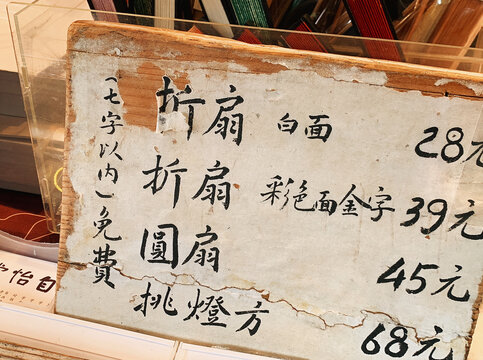 折扇 白面 28元
折扇 彩色面金字 39元
圓扇 45元
挑燈方 68元
(七字以内)免費
怡自